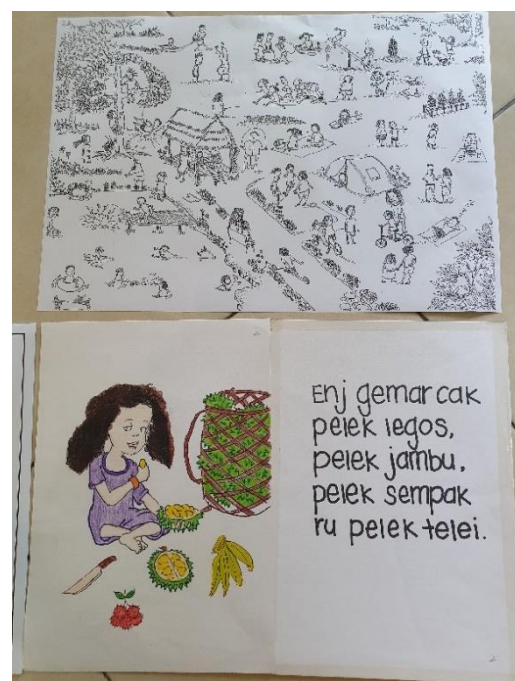 Enj gemar cak
pelek legos,
pelek jambu,
pelek sempak
ru pelek telei.